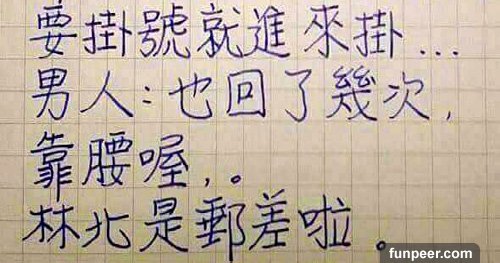 要掛號就進來掛...
男人:也回了幾次,
靠腰喔,。
林北是郵差啦。
funpeer.com